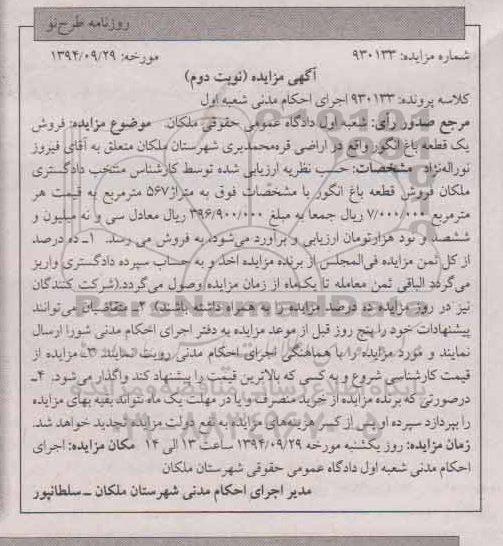 روزنامه طرح‌نو
شماره مزایده: ۹۳۰۱۳۳ مورخه: ۱۳۹۴/۰۹/۲۹
آگهی مزایده (نوبت دوم)
کلاسه پرونده: ۹۳۰۱۳۳ اجرای احکام مدنی شعبه اول
مرجع صدور رأی: شعبه اول دادگاه عمومی حقوقی ملکان. موضوع مزایده: فروش
یک قطعه باغ انگور واقع در اراضی قره‌محمدیری شهرستان ملکان متعلق به آقای فیروز
نوراله‌نژاد مشخصات: حسب نظریه ارزیابی شده توسط کارشناس منتخب دادگستری
ملکان فروش قطعه باغ انگور با مشخصات فوق به متراژ ۵۶۷ مترمربع به قیمت هر
مترمربع ۷/۰۰۰/۰۰۰ ریال جمعاً به مبلغ ۳۹۶/۹۰۰/۰۰۰ ریال معادل سی و نه میلیون و
ششصد و نود هزارتومان ارزیابی و برآورد می‌شود، به فروش می رسد. ۱ـ ده درصد
از کل ثمن مزایده فی‌المجلس از برنده مزایده اخذ و به حساب سپرده دادگستری واریز
می‌گردد الباقی ثمن معامله تا یک‌ماه از زمان مزایده وصول می‌گردد.(شرکت کنندگان
نیز در روز مزایده ده درصد مزایده را به همراه داشته باشند) ۲ـ متقاضیان می‌توانند
پیشنهادات خود را پنج روز قبل از موعد مزایده به دفتر اجرای احکام مدنی شورا ارسال
نمایند و مورد مزایده را با هماهنگی اجرای احکام مدنی رویت نمایند ۳ـ مزایده از
قیمت کارشناسی شروع و به کسی که بالاترین قیمت را پیشنهاد کند واگذار می‌شود. ۴ـ
درصورتی که برنده مزایده از خرید منصرف و یا در مهلت یک ماه نتواند بقیه بهای مزایده
را بپردازد سپرده او پس از کسر هزینه‌های مزایده به نفع دولت مزایده تجدید خواهد شد.
زمان مزایده: روز یکشنبه مورخه ۱۳۹۴/۰۹/۲۹ ساعت ۱۳ الی ۱۴ مکان مزایده: اجرای
احکام مدنی شعبه اول دادگاه عمومی حقوقی شهرستان ملکان
مدیر اجرای احکام مدنی شهرستان ملکان ـ سلطانپور